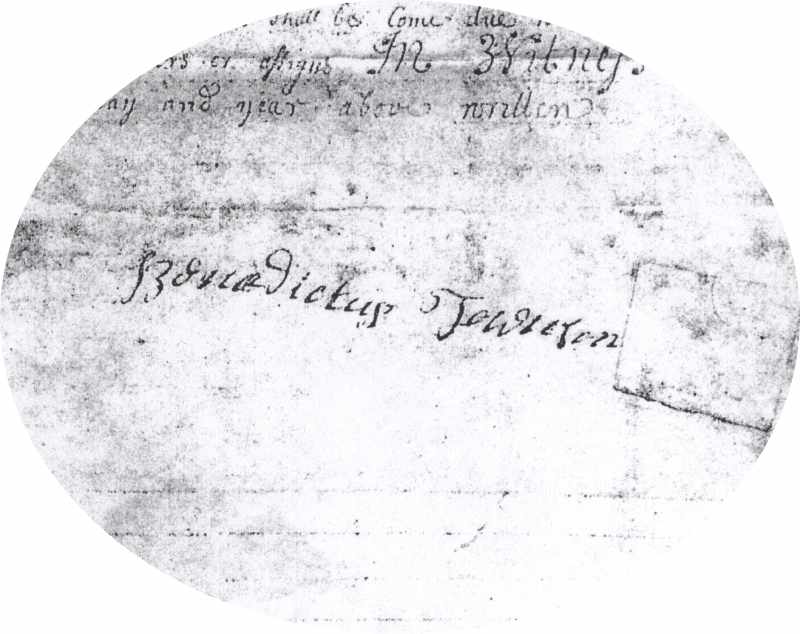 shall be Come due
ers or assigns In Witness
ay and year above written
Benedictus Townson